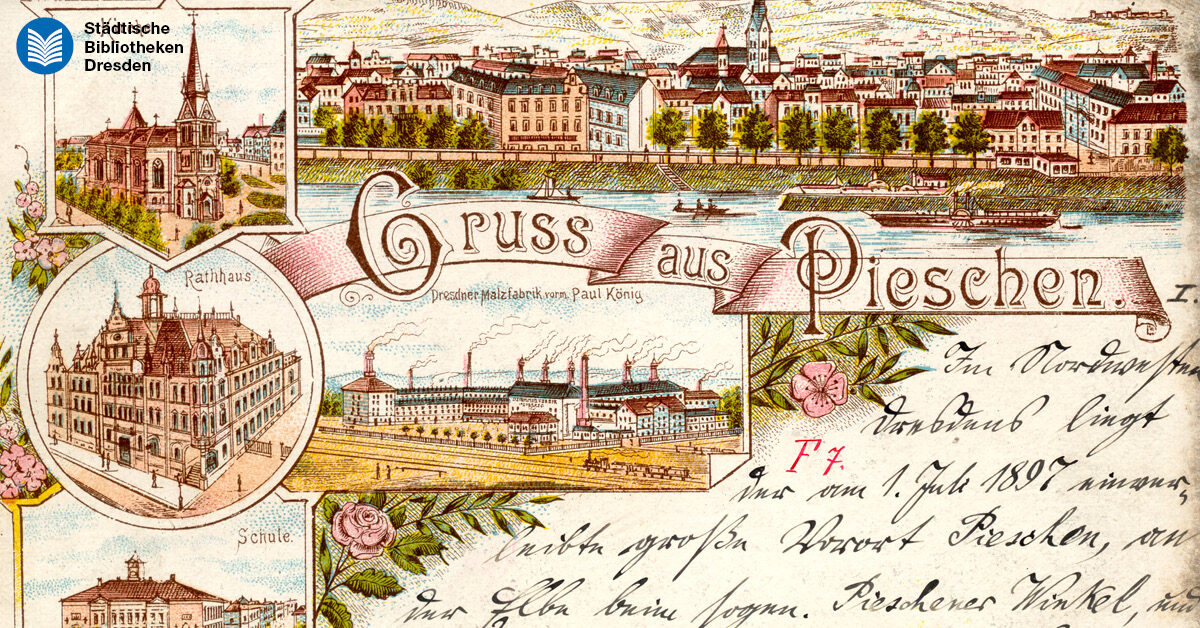 Städtische
Bibliotheken
Dresden
Gruss aus Pieschen.
Rathhaus
Dresdner Malzfabrik vorm. Paul König
Schule.
I.
Im Nordwesten
Dresdens liegt
F 7.
der am 1. Juli 1897 einver-
leibte große Vorort Pieschen, an
der Elbe beim sogen. Pieschener Winkel, und